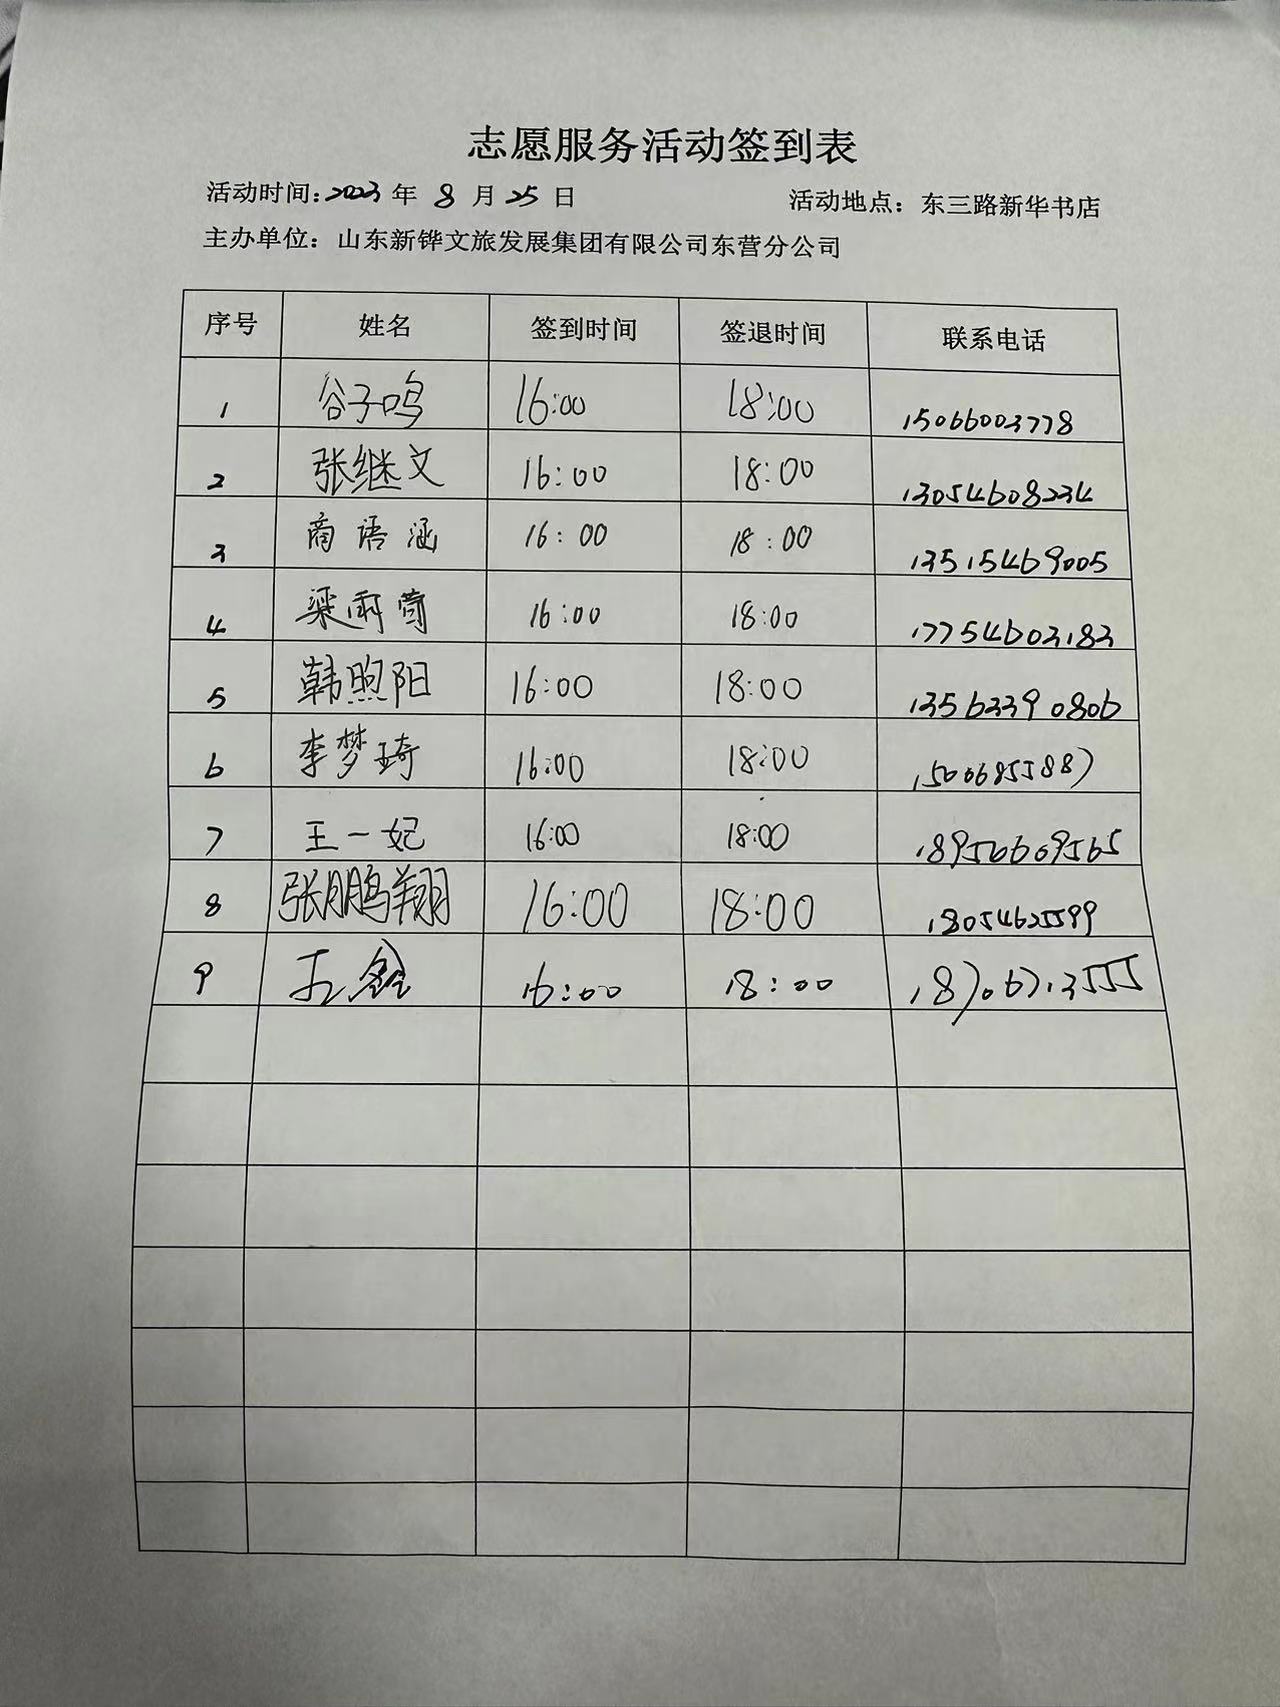 志愿服务活动签到表
活动时间:2023年 8 月 25 日 活动地点：东三路新华书店
主办单位：山东新铧文旅发展集团有限公司东营分公司
序号 姓名 签到时间 签退时间 联系电话
1 谷子鸣 16:00 18:00 15066003778
2 张继文 16:00 18:00 13054608234
3 商语涵 16:00 18:00 13515469005
4 梁雨萱 16:00 18:00 17754603183
5 韩煦阳 16:00 18:00 13563390806
6 李梦琦 16:00 18:00 15006855887
7 王一妃 16:00 18:00
8 张鹏翔 16:00 18:00 18054625599
9 王鑫 16:00 18:00